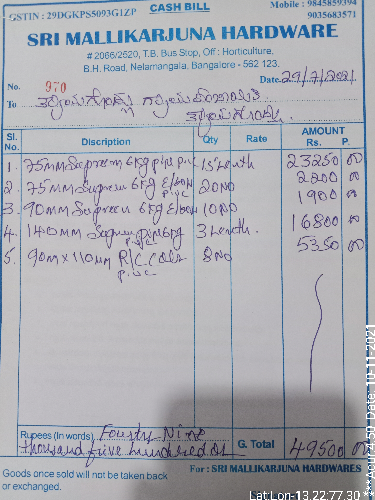 GSTIN : 29DGKPS5093G1ZP CASH BILL Mobile : 9845859394
9035683571
SRI MALLIKARJUNA HARDWARE
# 2066/2520, T.B. Bus Stop, Off : Horticulture,
B.H. Road, Nelamangala, Bangalore - 562 123.
No. 970 Date 27/7/2021
To
Sl. No. Discription Qty Rate AMOUNT Rs. P.
1. 75mm Supreem 6kg pipe p.v.c 15 Lenth 23250 00
2. 75mm Supreem 6kg Elbow p.v.c 20 NO 2200 00
3. 90mm Supreem 6kg Elbow 10 NO 1900 00
4. 140mm 6kg p.v.c 3 Lenth. 16800 00
5. 90m x 110mm R/C p.v.c 8 NO 5350 00
Rupees (In words) Fourty Nine
thousand five hundred G. Total 49500 00
Goods once sold will not be taken back
or exchanged.
For : SRI MALLIKARJUNA HARDWARES
Lat:Lon-13.22:77.30 ***Acu:4.59 Date: 10-11-2021